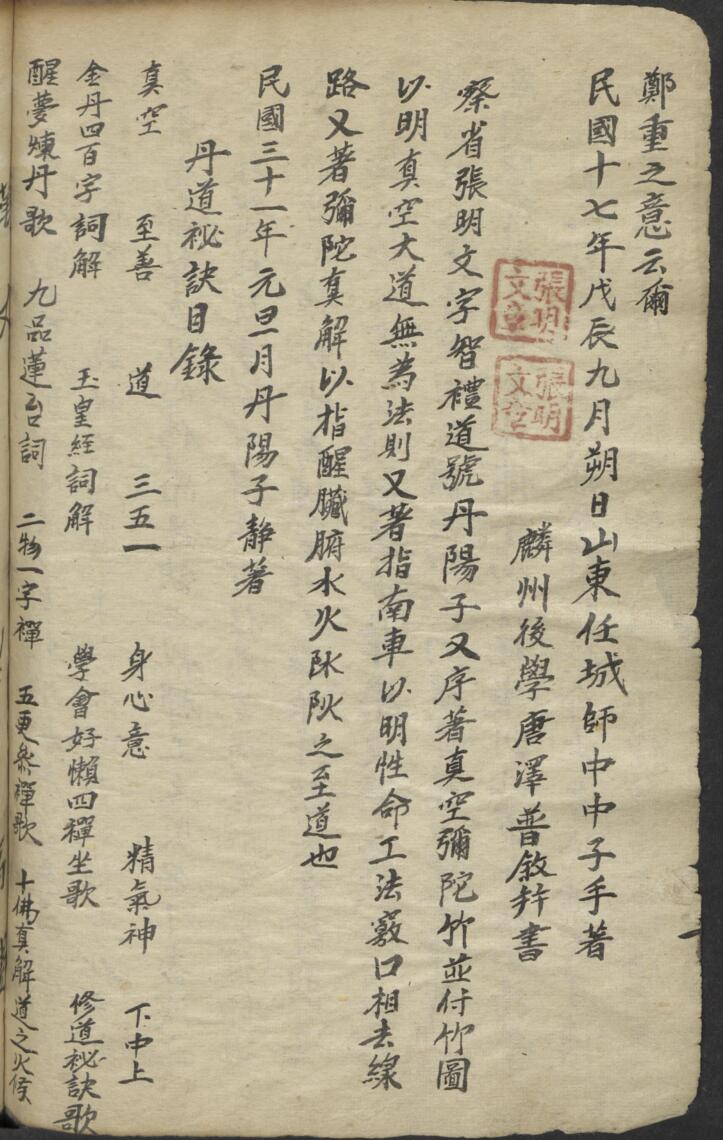 鄭重之意云爾
民國十七年戊辰九月朔日山東任城師中中子手著
麟州後學唐澤普敘并書
張明文章
張明文章
察省張明文字智禮道號丹陽子又序著真空彌陀竹並付竹圖
以明真空大道無為法則又著指南車以明性命工法竅口相去線
路又著彌陀真解以指醒臟腑水火之至道也
民國三十一年元旦月丹陽子靜著
丹道祕訣目錄
真空 至善 道 三五一 身心意 精氣神 下中上
金丹四百字詞解 玉皇經詞解 學會好懶四禪坐歌 修道祕訣歌
醒夢煉丹歌 九品蓮台詞 二物一字禪 五更參禪歌 十佛真解道之火候